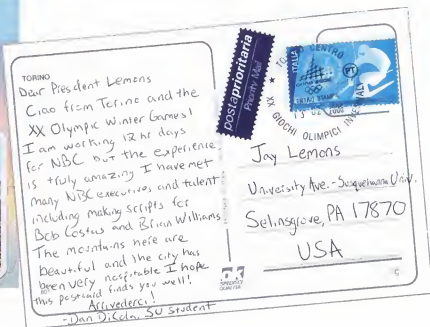 TORINO
Dear President Lemons
Ciao from Torino and the
XX Olympic Winter Games!
I am working 12 hr days
for NBC but the experience
is truly amazing I have met
many NBC executives and talent
including making scripts for
Bob Costas and Brian Williams
The mountains here are
beautiful and the city has
been very hospitable I hope
this postcard finds you well!
Arrivederci!
-Dan DiCola, SU Student
postaprioritaria
Priority Mail
ITALIA
CENTRO
XX GIOCHI OLIMPICI
Jay Lemons
University Ave.- Susquehanna Univ.
Selinsgrove, PA 17870
USA
C